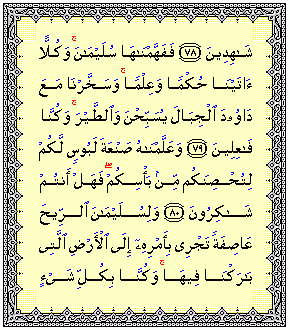 شَـٰهِدِينَ ﴿٧٨﴾ فَفَهَّمْنَـٰهَا سُلَيْمَـٰنَ ۚ وَكُلًّا
ءَاتَيْنَا حُكْمًا وَعِلْمًا ۚ وَسَخَّرْنَا مَعَ
دَاوُۥدَ ٱلْجِبَالَ يُسَبِّحْنَ وَٱلطَّيْرَ ۚ وَكُنَّا
فَـٰعِلِينَ ﴿٧٩﴾ وَعَلَّمْنَـٰهُ صَنْعَةَ لَبُوسٍ لَّكُمْ
لِتُحْصِنَكُم مِّنۢ بَأْسِكُمْ ۖ فَهَلْ أَنتُمْ
شَـٰكِرُونَ ﴿٨٠﴾ وَلِسُلَيْمَـٰنَ ٱلرِّيحَ
عَاصِفَةً تَجْرِى بِأَمْرِهِۦٓ إِلَى ٱلْأَرْضِ ٱلَّتِى
بَـٰرَكْنَا فِيهَا ۚ وَكُنَّا بِكُلِّ شَىْءٍ